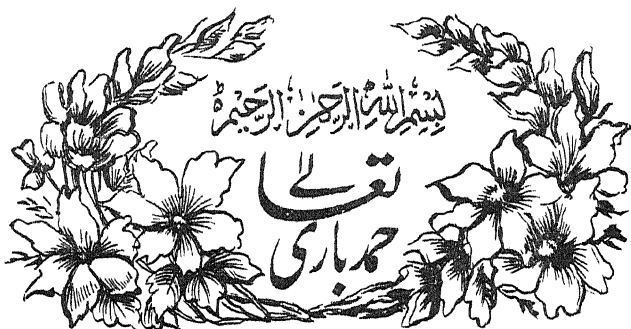 بِسْمِ اللّٰهِ الرَّحْمٰنِ الرَّحِيْمِ
حمد باری
تعالےٰ